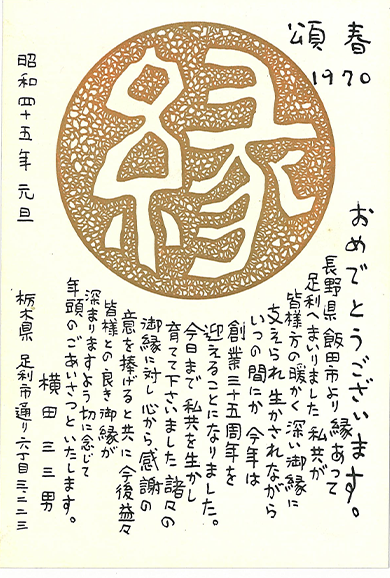 頌春
1970
縁
おめでとうございます。
長野県飯田市より縁あって
足利へまいりました私共が
皆様方の暖かく深い御縁に
支えられ生かされながら
いつの間にか今年は
創業三十五周年を
迎えることになりました。
今日まで私共を生かし
育てて下さいました諸々の
御縁に対し心から感謝の
意を捧げると共に今後益々
皆様との良き御縁が
深まりますよう切に念じて
年頭のごあいさつといたします。
昭和四十五年元旦
横田三三男
栃木県足利市通り六丁目三一二三